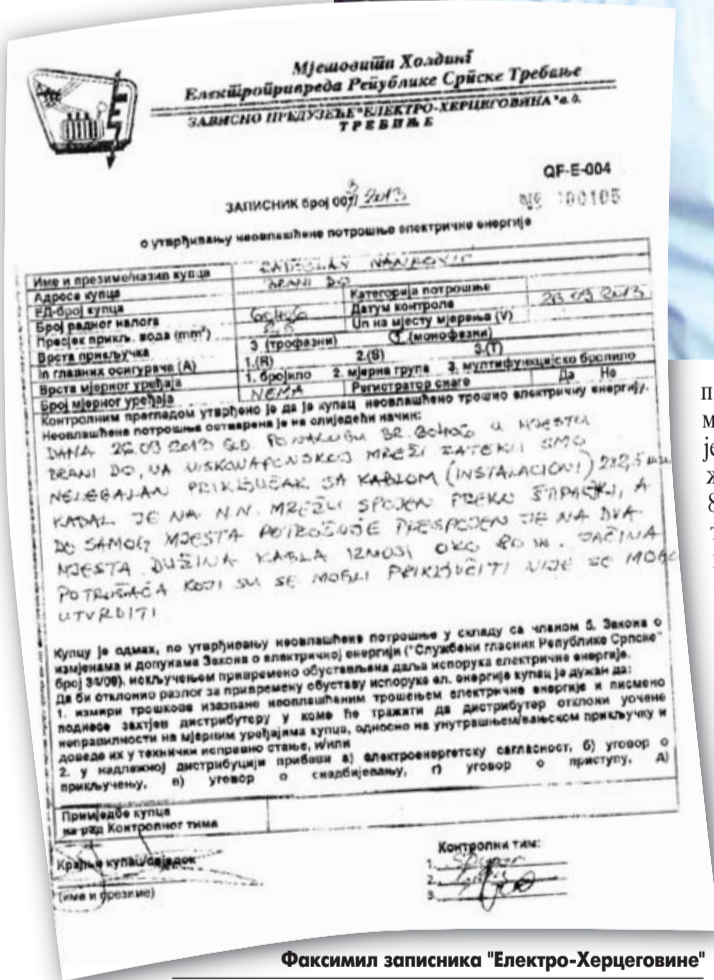 Мјешовити Холдинг
Електропривреда Републике Српске Требиње
ЗАВИСНО ПРЕДУЗЕЋЕ "ЕЛЕКТРО-ХЕРЦЕГОВИНА" а.д.
ТРЕБИЊЕ
QF-E-004
ЗАПИСНИК број 007/ 2013
№ 100105
о утврђивању неовлашћене потрошње електричне енергије
Име и презиме/назив купца
Адреса купца BRANI DO Категорија потрошње
ЕД-број купца Датум контроле 26 09 2013
Број радног налога Un на мјесту мјерења (V)
Пресјек прикљ. вода (mm²)
Врста прикључка 3 (трофазни) 1 (монофазни)
In главних осигурача (A) 1.(R) 2.(S) 3.(T)
Врста мјерног уређаја 1. бројило 2. мјерна група 3. мултифункцијско бројило
Број мјерног уређаја NEMA Регистратор снаге Да Не
Контролним прегледом утврђено је да је купац неовлашћено трошио електричну енергију.
Неовлашћена потрошња остварена је на слиједећи начин:
DANA 26.09 2013 PO NALOGU BR. 60406 U MJESTU
BRANI DO, NA NISKONAPONSKOJ MREŽI ZATEKLI SMO
NELEGALAN PRIKLJUČAK SA KABLOM (INSTALACIONI) 2x2,5
KABAL JE NA N.N. MREŽU SPOJEN PREKO A
DO SAMOG MJESTA POTROŠNJE PRESPOJEN JE NA DVA
MJESTA. DUŽINA KABLA IZNOSI OKO 80 m. JAČINA
POTROŠAČA KOJI SU SE MOGLI PRIKLJUČITI NIJE SE MOGLA
UTVRDITI
Купцу је одмах, по утврђивању неовлашћене потрошње у складу са чланом 5. Закона о
измјенама и допунама Закона о електричној енергији ("Службени гласник Републике Српске"
број 34/09), искључењем привремено обустављена даља испорука електричне енергије.
Да би отклонио разлог за привремену обуставу испоруке ел. енергије купац је дужан да:
1. измири трошкове изазване неовлашћеним трошењем електричне енергије и писмено
поднесе захтјев дистрибутеру у коме ће тражити да дистрибутер отклони уочене
неправилности на мјерним уређајима купца, односно на унутрашњем/вањском прикључку и
доведе их у технички исправно стање, и/или
2. у надлежној дистрибуцији прибави а) електроенергетску сагласност, б) уговор о
прикључењу, в) уговор о снабдијевању, г) уговор о приступу, д)
Примједбе купца
на рад Контролног тима
Крајњи купац/свједок
(име и презиме)
Контролни тим:
1.
2.
3.
Факсимил записника "Електро-Херцеговине"